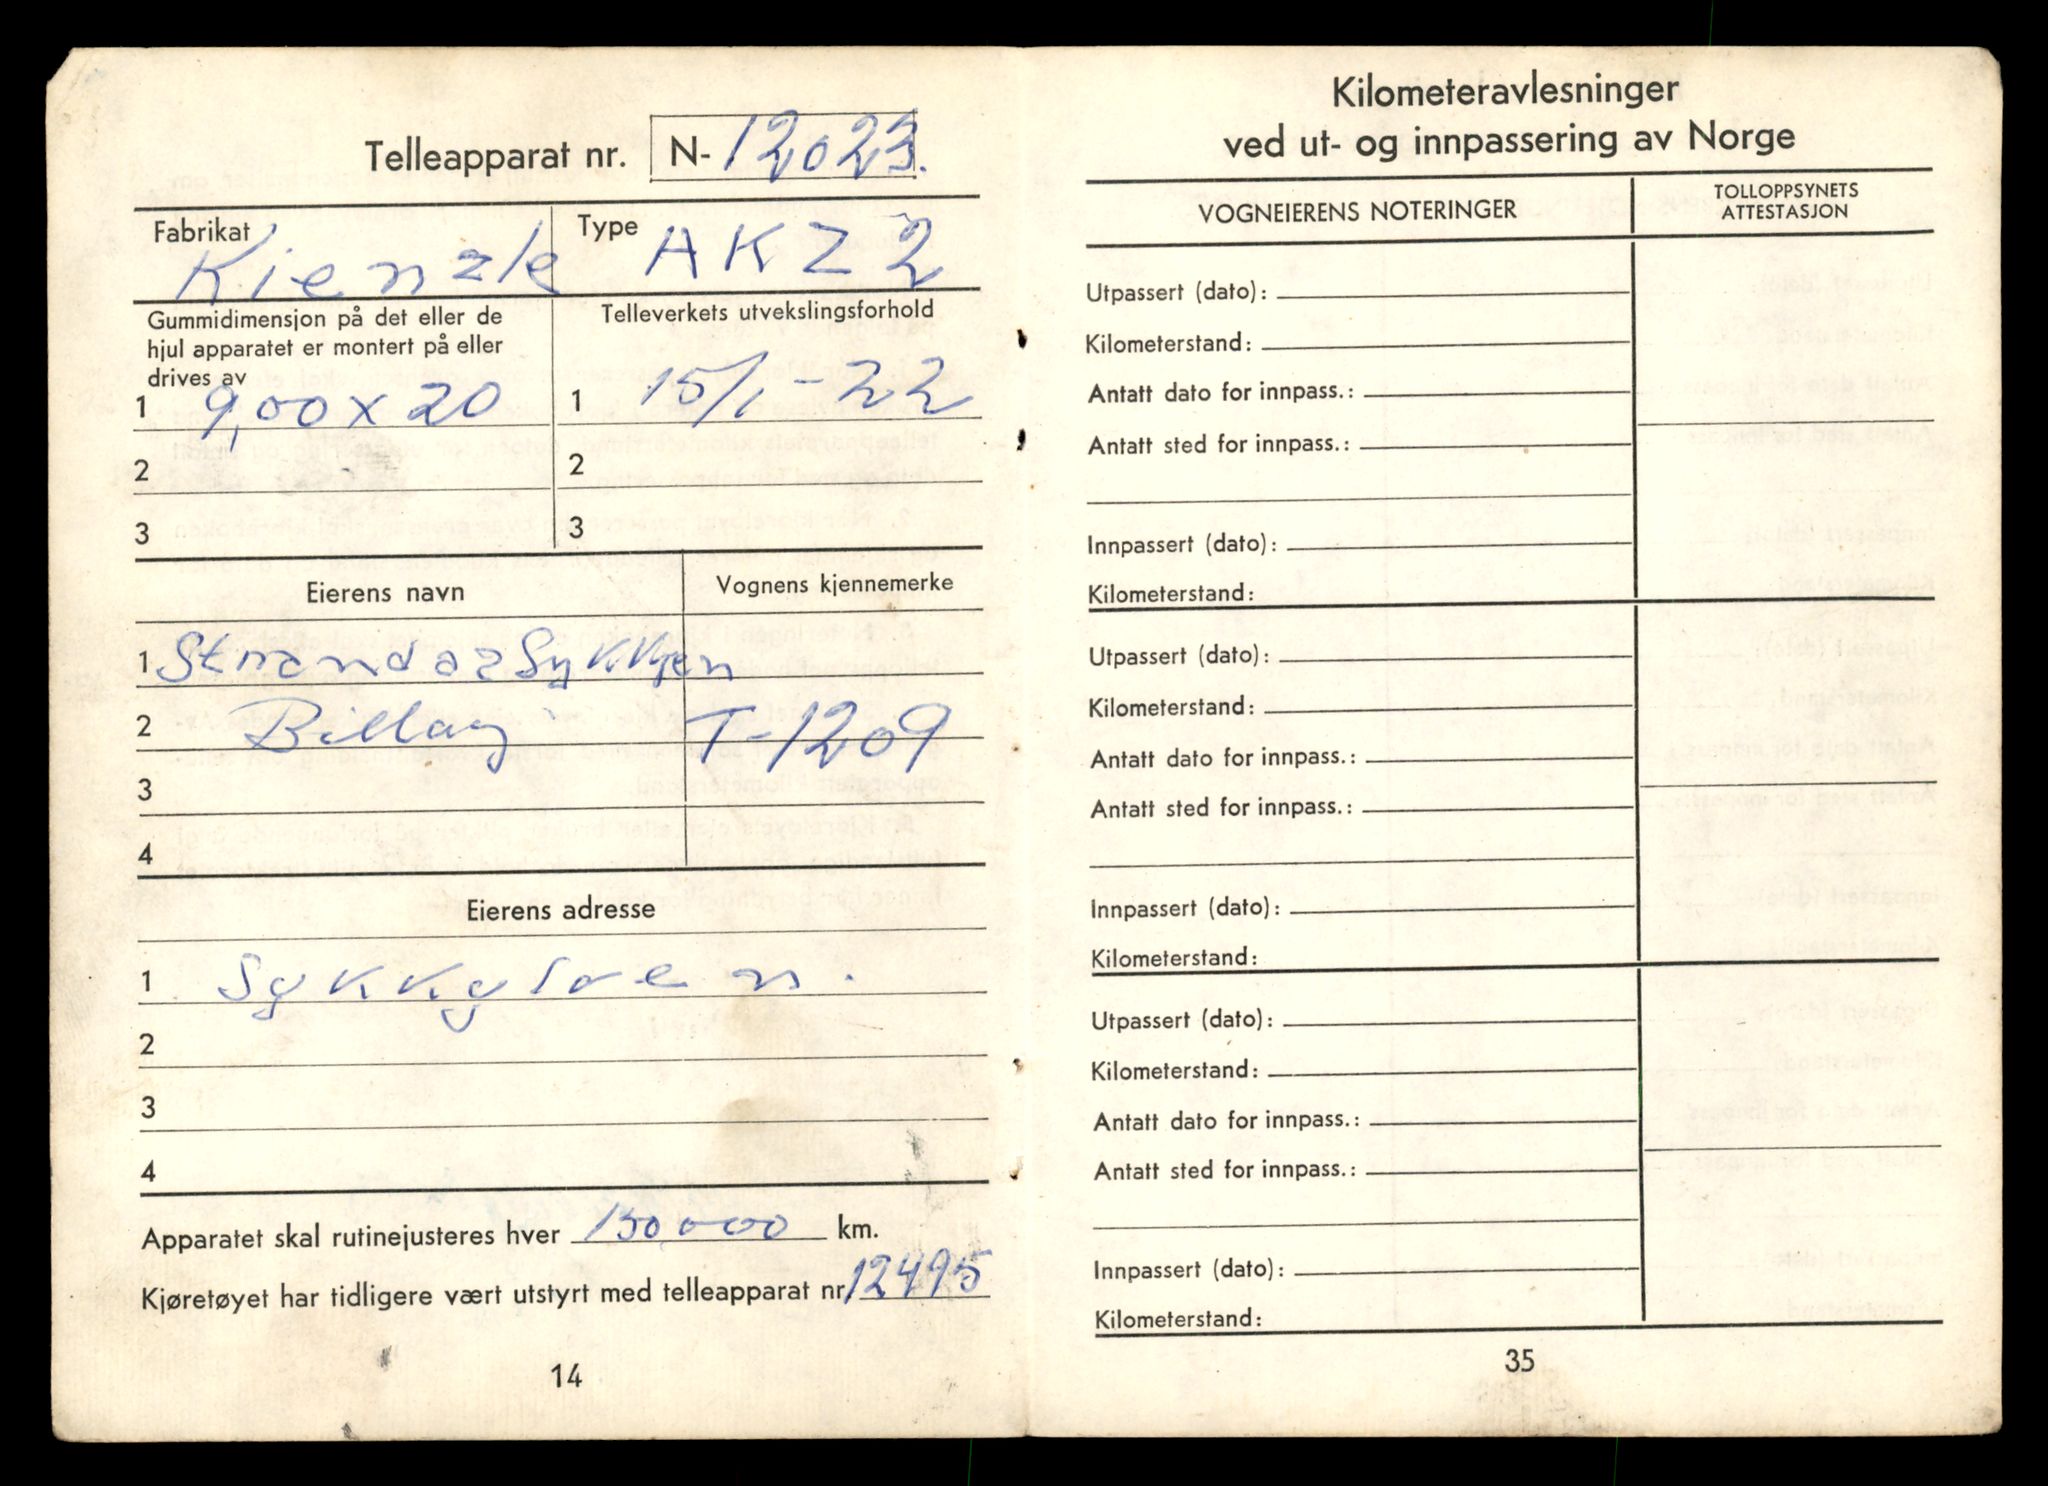 Telleapparat nr. N-12023.
Fabrikat Kienzle
Type AKZ 2
Gummidimensjon på det eller de
hjul apparatet er montert på eller
drives av
1 9,00 x 20
2
3
Telleverkets utvekslingsforhold
1 15/1-22
2
3
Eierens navn
Vognens kjennemerke
1
2 Billag T-1209
3
4
Eierens adresse
1 Sykkylven.
2
3
4
Apparatet skal rutinejusteres hver 150,000 km.
Kjøretøyet har tidligere vært utstyrt med telleapparat nr. 12495
14
Kilometeravlesninger
ved ut- og innpassering av Norge
VOGNEIERENS NOTERINGER
TOLLOPPSYNETS
ATTESTASJON
Utpassert (dato):
Kilometerstand:
Antatt dato for innpass.:
Antatt sted for innpass.:
Innpassert (dato):
Kilometerstand:
Utpassert (dato):
Kilometerstand:
Antatt dato for innpass.:
Antatt sted for innpass.:
Innpassert (dato):
Kilometerstand:
Utpassert (dato):
Kilometerstand:
Antatt dato for innpass.:
Antatt sted for innpass.:
Innpassert (dato):
Kilometerstand:
35